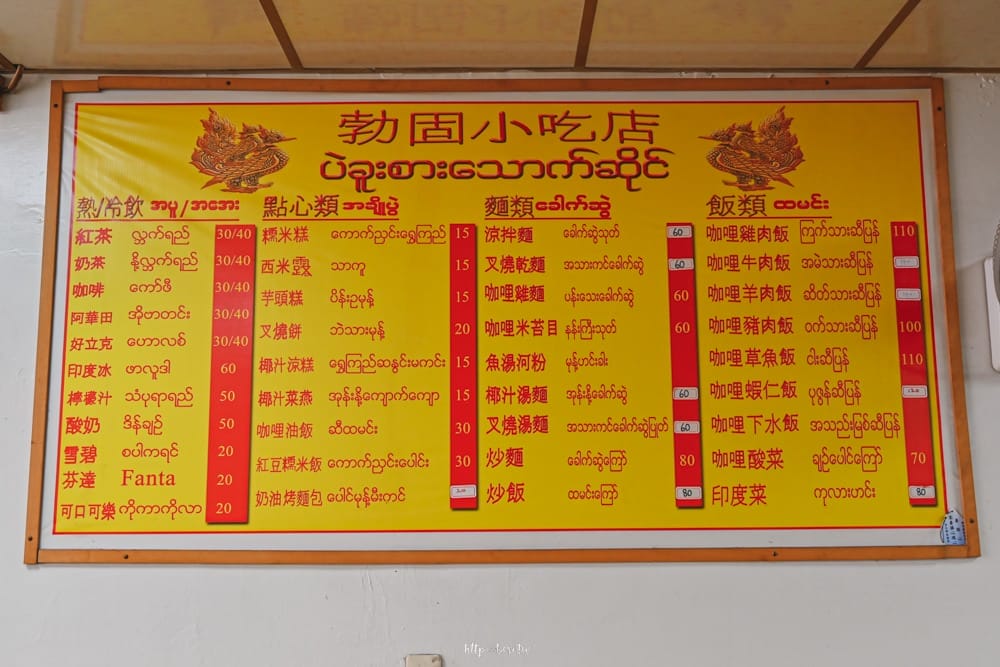 勃固小吃店
ပဲခူးစားသောက်ဆိုင်
熱/冷飲 အပူ/အအေး
紅茶 လ္ဘက်ရည် 30/40
奶茶 နို့လ္ဘက်ရည် 30/40
咖啡 ကော်ဖီ 30/40
阿華田 အိုဗာတင်း 30/40
好立克 ဟောလစ် 30/40
印度冰 ဖာလူဒါ 60
檸檬汁 သံပုရာရည် 50
酸奶 ဒိန်ချဉ် 50
雪碧 စပါကရင် 20
芬達 Fanta 20
可口可樂 ကိုကာကိုလာ 20
點心類 အချိုပွဲ
糯米糕 ကောက်ညှင်းရွှေကြည် 15
西米露 သာကူ 15
芋頭糕 ပိန်းဥမုန့် 15
叉燒餅 ဘဲသားမုန့် 20
椰汁涼糕 ရွှေကြည်ဆနွင်းမကင်း 15
椰汁菜燕 အုန်းနို့ကျောက်ကျော 15
咖哩油飯 ဆီထမင်း 30
紅豆糯米飯 ကောက်ညှင်းပေါင်း 30
奶油烤麵包 ပေါင်မုန့်မီးကင်
麵類 ခေါက်ဆွဲ
涼拌麵 ခေါက်ဆွဲသုတ် 60
叉燒乾麵 အသားကင်ခေါက်ဆွဲ 60
咖哩雞麵 ပန်းသေးခေါက်ဆွဲ 60
咖哩米苔目 နန်းကြီးသုတ် 60
魚湯河粉 မုန့်ဟင်းခါး
椰汁湯麵 အုန်းနို့ခေါက်ဆွဲ 60
叉燒湯麵 အသားကင်ခေါက်ဆွဲပြုတ် 60
炒麵 ခေါက်ဆွဲကြော် 80
炒飯 ထမင်းကြော် 80
飯類 ထမင်း
咖哩雞肉飯 ကြက်သားဆီပြန် 110
咖哩牛肉飯 အမဲသားဆီပြန်
咖哩羊肉飯 ဆိတ်သားဆီပြန်
咖哩豬肉飯 ဝက်သားဆီပြန် 100
咖哩草魚飯 ငါးဆီပြန် 110
咖哩蝦仁飯 ပုဇွန်ဆီပြန်
咖哩下水飯 အသည်းမြစ်ဆီပြန်
咖哩酸菜 ချဉ်ပေါင်ကြော် 70
印度菜 ကုလားဟင်း 80